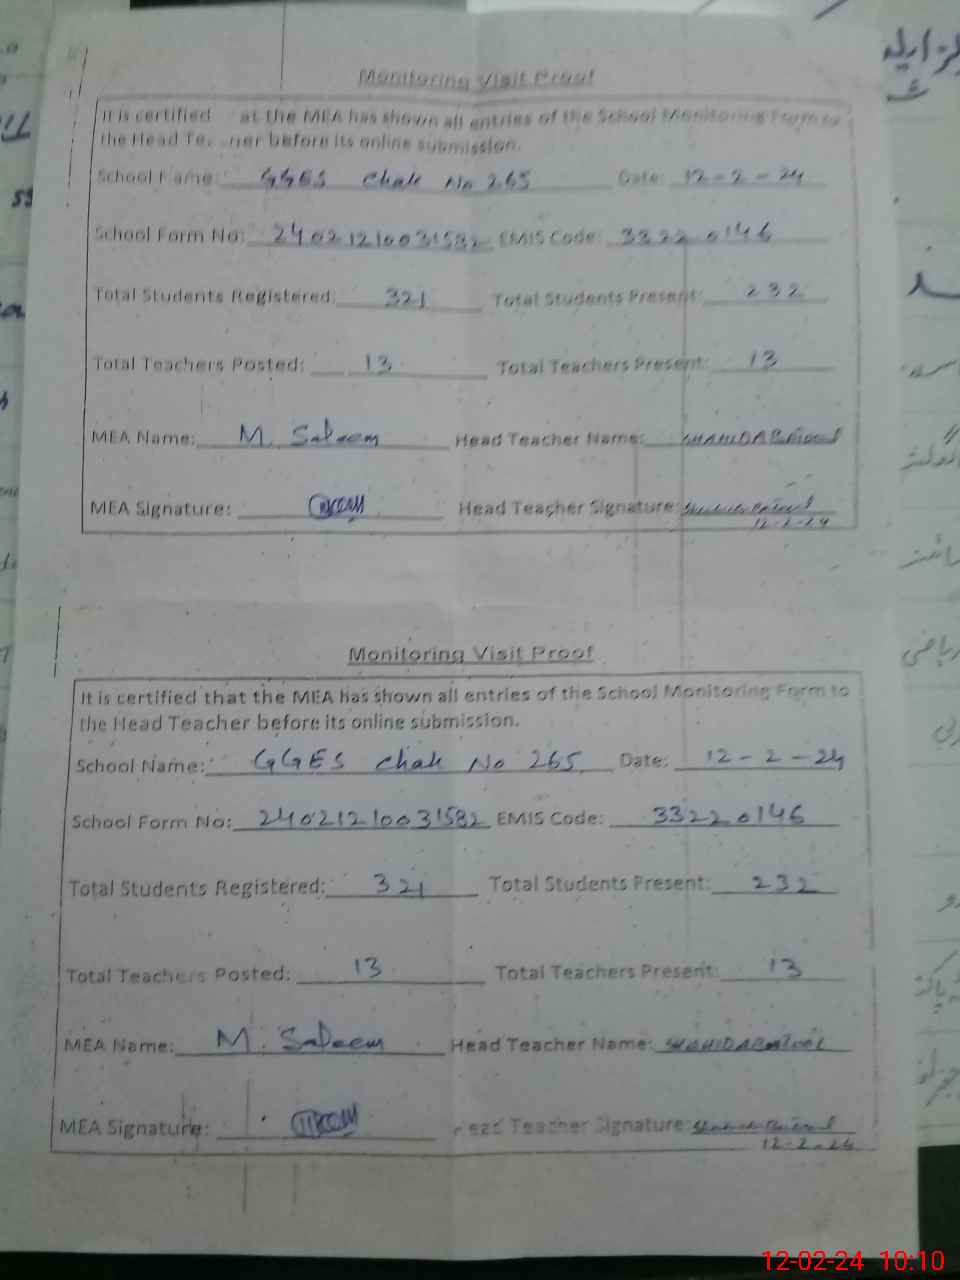 Monitoring Visit Proof
It is certified at the MEA has shown all entries of the School Monitoring Form to
the Head Te. ner before its online submission.
School Name: GGES Chak No 265 Date: 12-2-24
School Form No: 2402121003 1582 EMIS Code: 33220146
Total Students Registered: 321 Total Students Present: 232
Total Teachers Posted: 13 Total Teachers Present: 13
MEA Name: M. Saleem Head Teacher Name: SHAHIDA Batool
MEA Signature: Head Teacher Signature:
12-2-24
Monitoring Visit Proof
It is certified that the MEA has shown all entries of the School Monitoring Form to
the Head Teacher before its online submission.
School Name: GGES Chak No 265 Date: 12-2-24
School Form No: 24021210031582 EMIS Code: 33220146
Total Students Registered: 321 Total Students Present: 232
Total Teachers Posted: 13 Total Teachers Present: 13
MEA Name: M. Saleem Head Teacher Name: SHAHIDA Batool
MEA Signature: ead Teacher Signature:
12-2-24
12-02-24 10:10